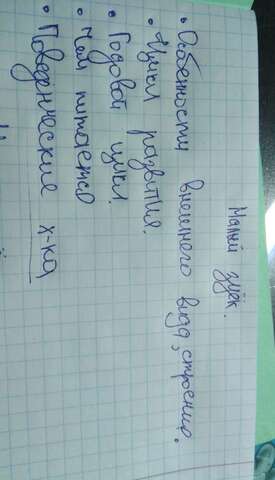 Малый зуёк.
• Особенности внешнего вида, строение.
• Цикл развития.
• Годовой цикл.
• Чем питается
• Поведенческие х-ка